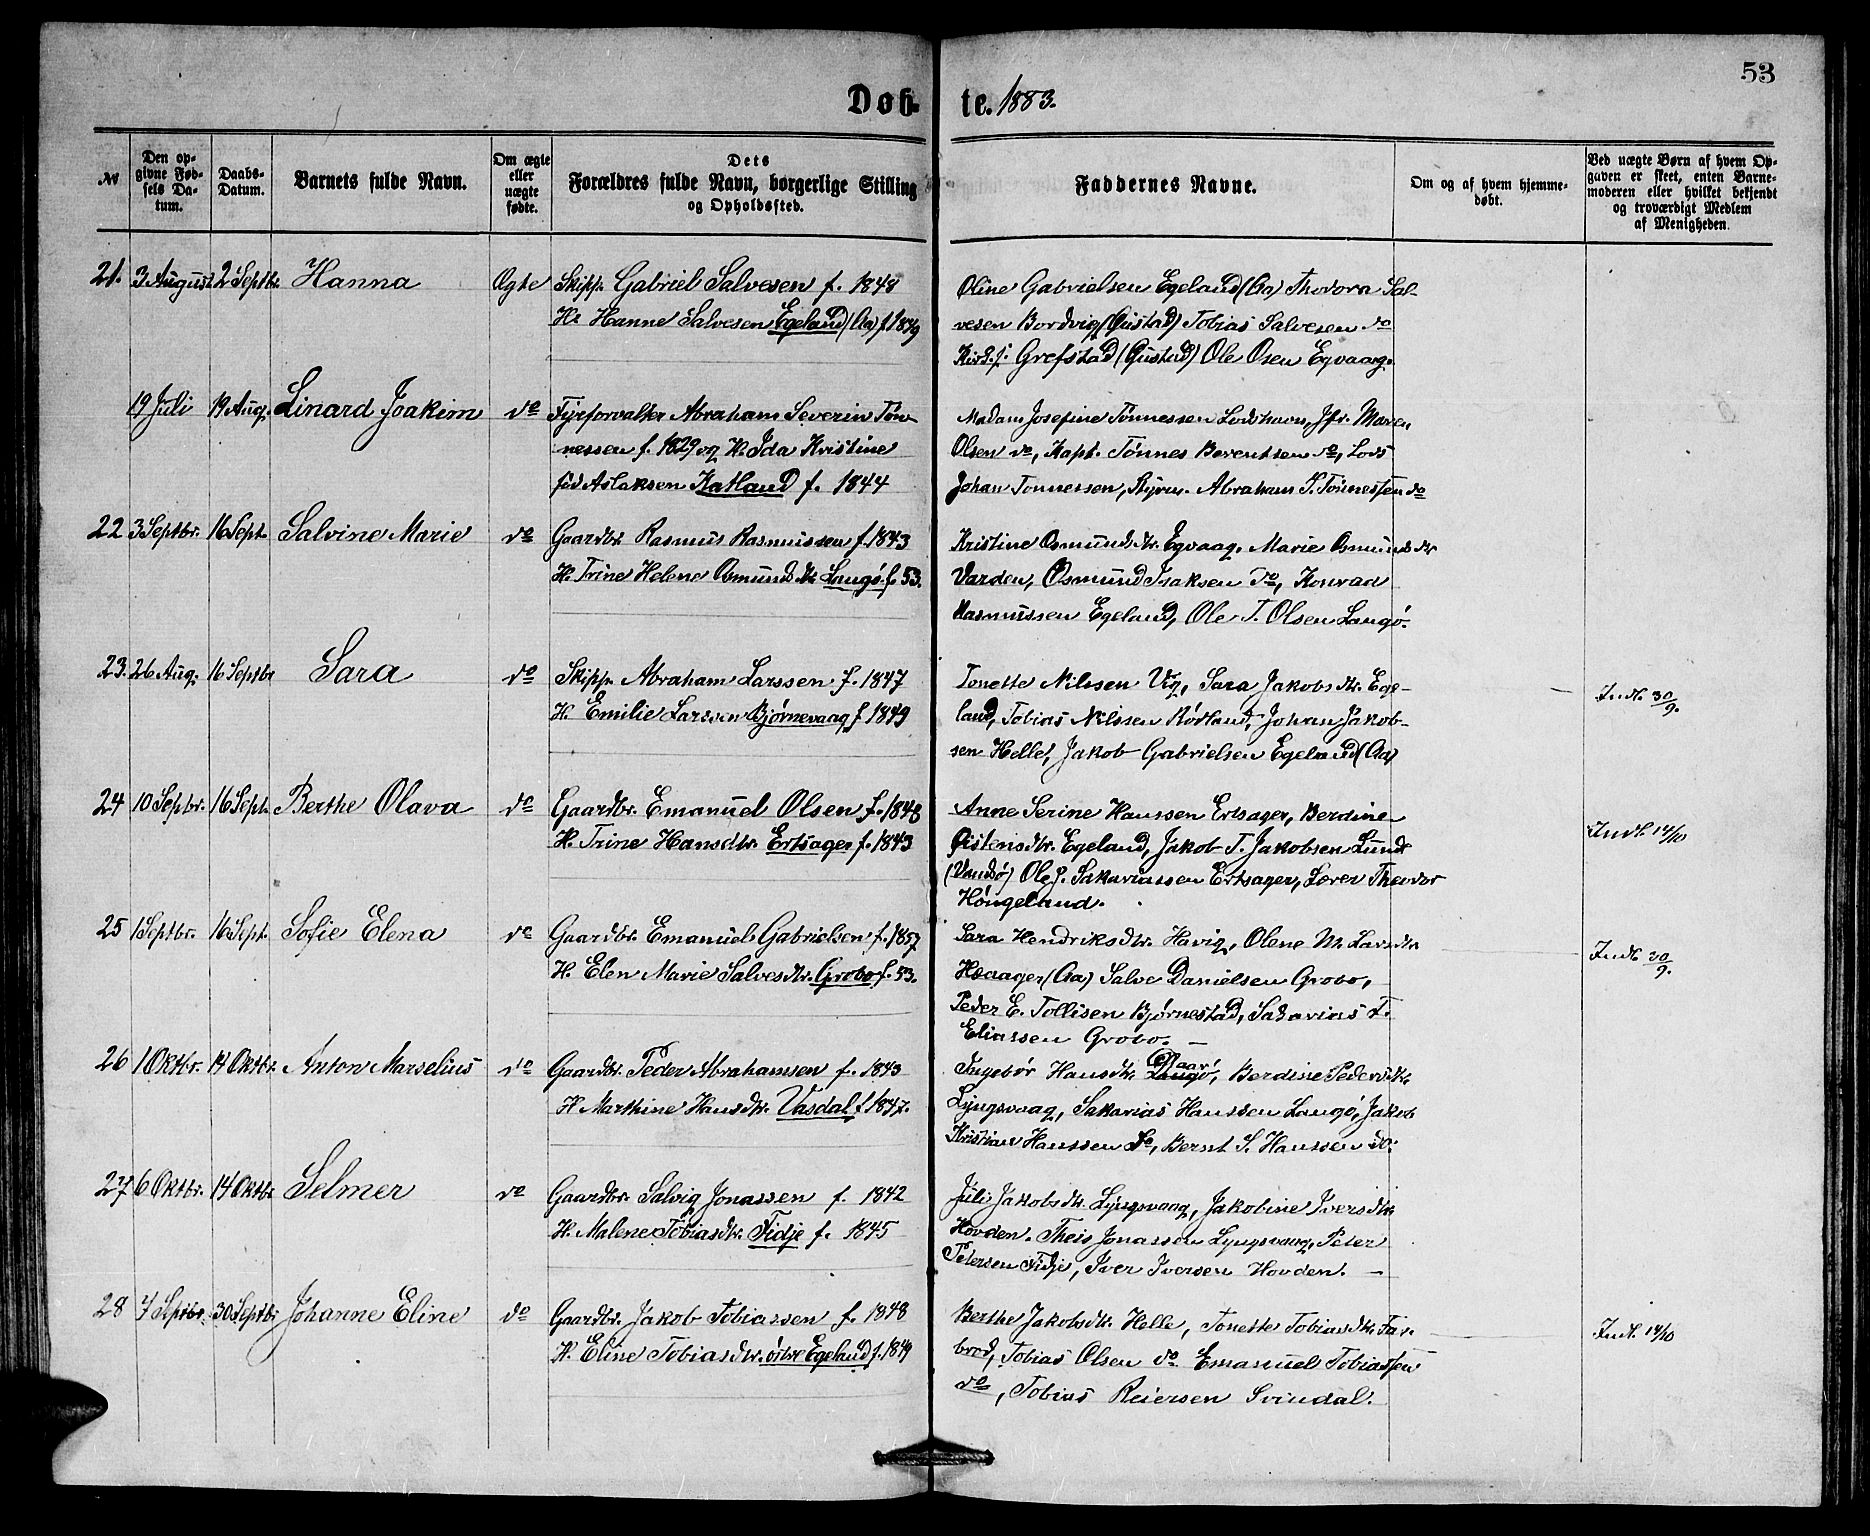 53
Døbte. 1883.
№
Den opgivne Fødsels Datum.
Daabs-Datum.
Barnets fulde Navn.
Om ægte eller uægte fødte.
Dets Forældres fulde Navn, borgerlige Stilling og Opholdssted.
Faddernes Navne.
Om og af hvem hjemmedøbt.
Ved uægte Børn af hvem Opgaven er skeet, enten Barnemoderen eller hvilket bekjendt og troværdigt Medlem af Menigheden.
21. 3 August 2 Septbr. Hanna Ægte Skipp. Gabriel Salvesen f. 1848
H. Hanne Salvesen Egeland (Aa) f 1849
Oline Gabrielsen Egeland (Aa) Thodora Sal-
vesen Bordvig (Øustad) Tobias Salvesen do
Grefstad (Øustad) Ole Osen Egvaag.
19 Juli 19 Aug. Linard Joakim do Fyrforvalter Abraham Severin Tøn-
nessen f. 1829 og H. Ida Kristine
fød Aslaksen Katland f. 1844
Madam Josefine Tønnessen Lodshavn, Jfr. Maren
Olsen do, Kapt. Tønnes Berentsen do, Lods
Johan Tønnessen, Styrm. Abraham S. Tønnessen do
22 3 Septbr. 16 Sept. Salvine Marie do Gaardbr. Rasmus Rasmussen f. 1843
H. Trine Helene Osmundsdtr. Langø f. 53.
Kristine Osmundsdtr. Egvaag, Marie Osmundsdtr
Varden, Osmund Isaksen do, Konrad
Rasmussen Egeland, Ole T. Olsen Langø.
23. 26 Aug. 16 Septbr Sara do Skipp. Abraham Larssen f. 1847
H. Emilie Larssen Bjørnevaag f 1849
Tonette Nilssen Vig, Sara Jakobsdtr. Ege-
land, Tobias Nilssen Rødland, Johan Jakob-
sen Helle, Jakob Gabrielsen Egeland (Aa)
Indt. 30/9.
24 10 Septbr. 16 Sept. Berthe Olava do Gaardbr. Emanuel Olsen f. 1848
H. Trine Hansdtr. Ertsager f. 1843
Anne Serine Hanssen Ertsager, Berdine
Øistensdtr. Egeland, Jakob T. Jakobsen Lund
(Vandsø) Ole J. Sakariassen Ertsager, Lærer Theodor
Høngeland.
Indt. 14/10
25 1 Septbr. 16 Sept. Sofie Elena do Gaardbr. Emanuel Gabrielsen f. 1857
H. Elen Marie Salvesdtr. Grobo f. 53.
Sara Hendriksdtr. Havig, Olene M. Larsdtr
Haaager (Aa) Salve Danielsen Grobo,
Peder E. Tollisen Bjørnestad, Sakarias T.
Eliassen Grobo. –
Indt. 30/9.
26 1 Oktbr. 14 Oktbr. Anton Marselius do Gaardbr. Peder Abrahamsen f. 1843
H. Marthine Hansdtr. Vasdal f 1847.
Ingebør Hansdtr. Langø, Berdine Pedersdtr.
Lyngsvaag, Sakarias Hanssen Langø, Jakob
Kristian Hanssen do, Bernt S. Hanssen do.
27 6 Oktbr. 14 Oktbr Selmer do Gaardbr. Salvig Jonassen f. 1842
H. Malene Tobiasdtr. Fidje f. 1845
Juli Jakobsdtr. Lyngsvaag, Jakobine Iversdtr
Hovden. Theis Jonassen Lyngsvaag, Peter
Petersen Fidje, Iver Iversen Hovden. –
28 7 Septbr. 30 Septbr. Johanne Eline do Gaardbr. Jakob Tobiassen f. 1848
H. Eline Tobiasdtr. östre Egeland f. 1849
Berthe Jakobsdtr. Helle, Tonette Tobiasdtr. Far-
brod, Tobias Olsen do Emanuel Tobiassen
do, Tobias Reiersen Svindal.
Indt. 14/10